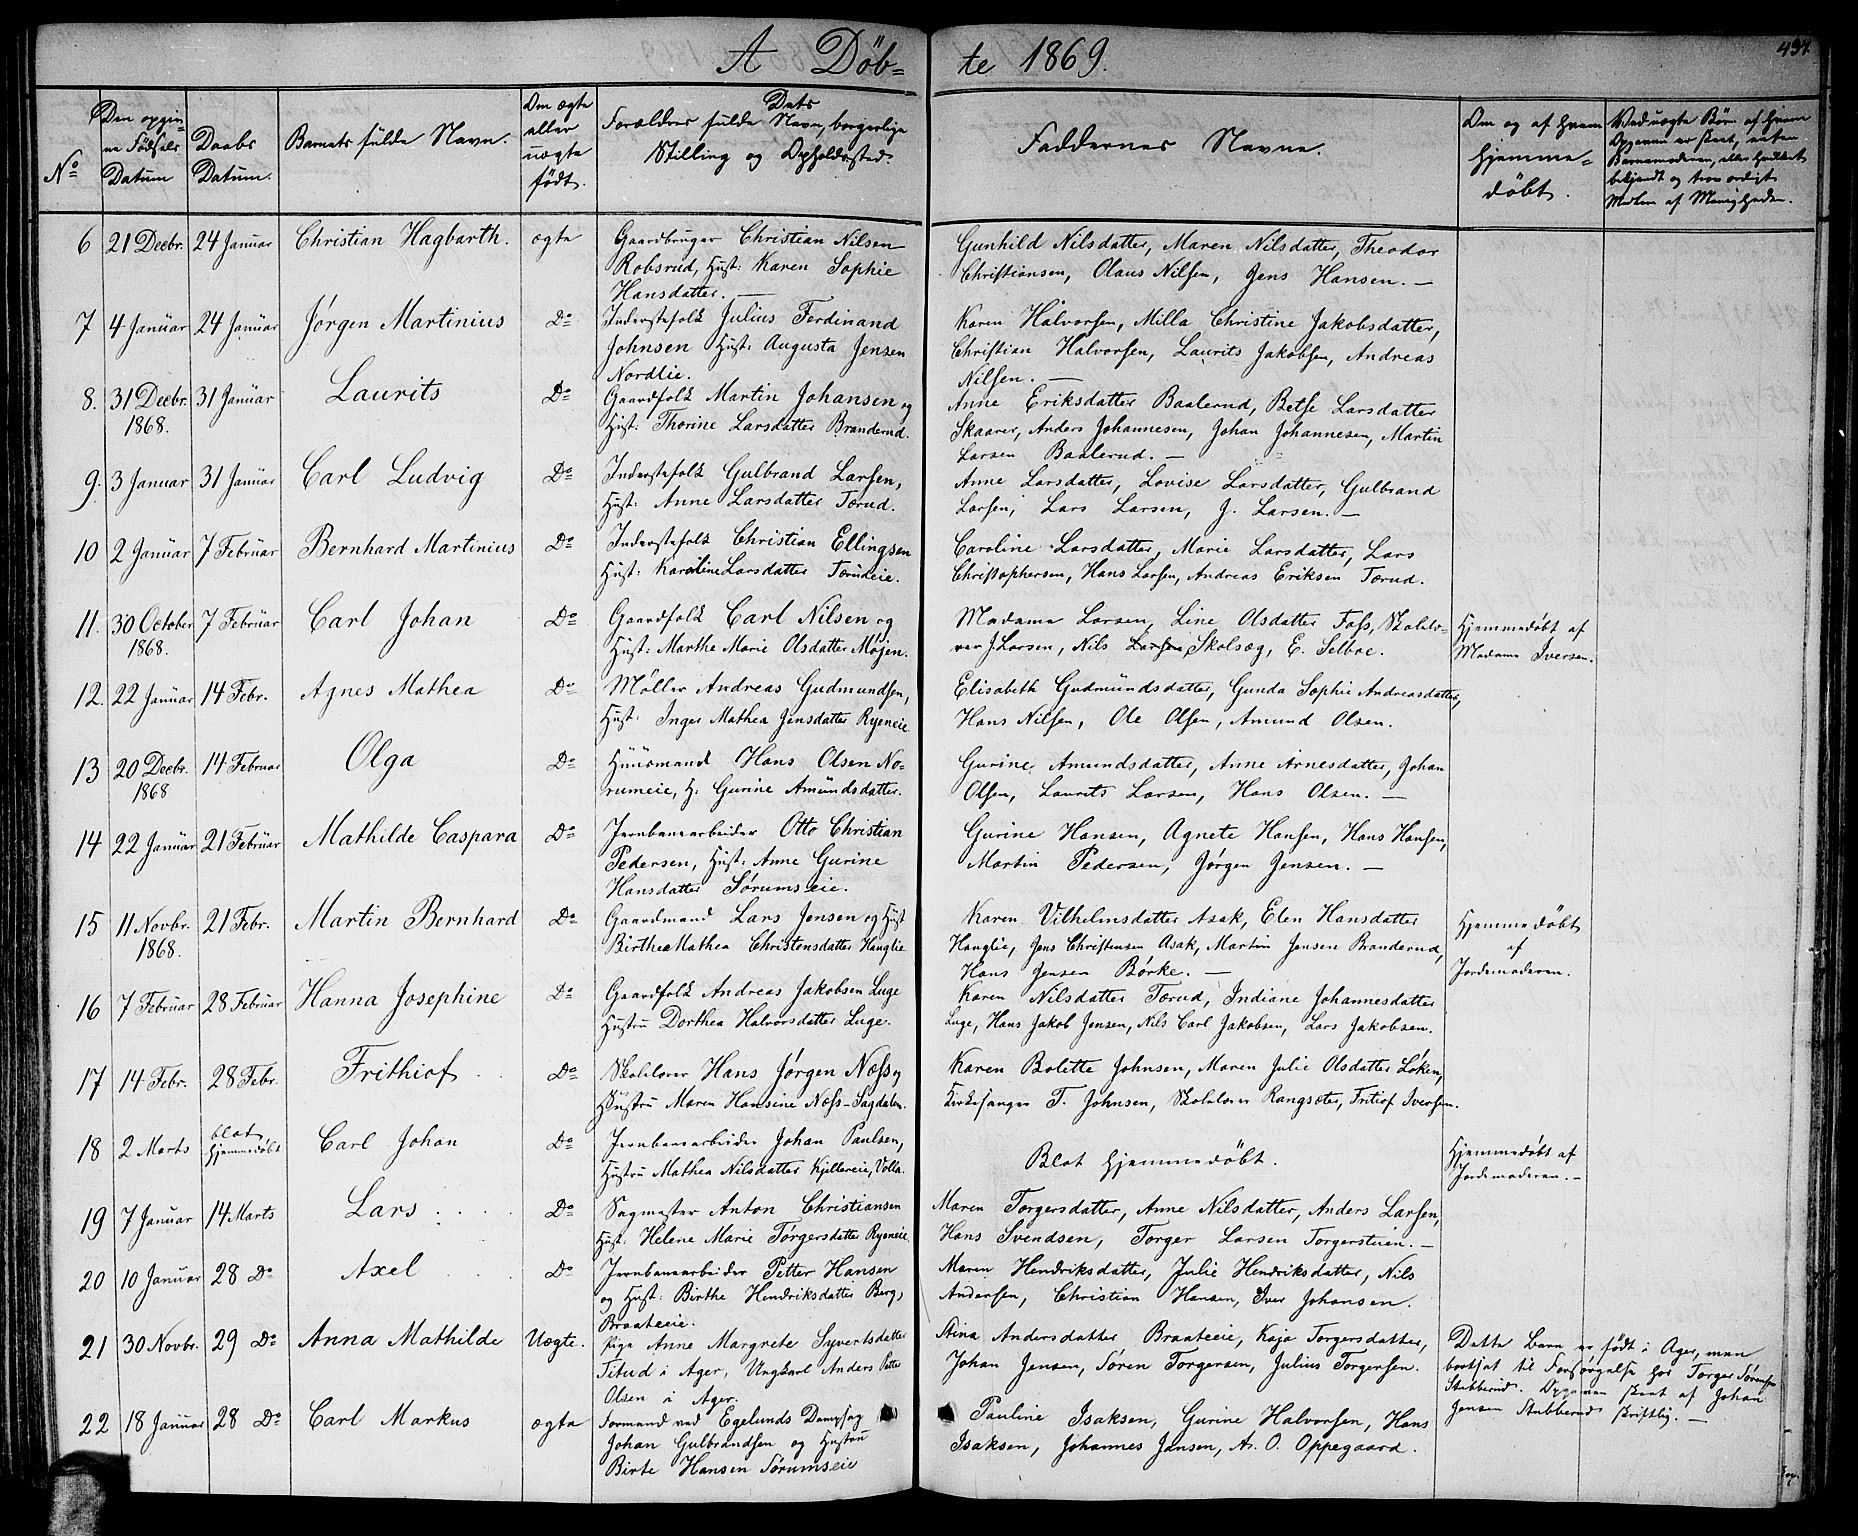 A Döb= te 1869.
431.
No
Den opgivne Födsels Datum
Daabs Datum.
Barnets fulde Navn.
Om ægte eller uægte födt.
Forældres fulde Navn, borgerlige Stilling og Opholdssted.
Faddernes Navne.
Om og af hvem hjemmedöbt.
6 21 Decbr. 24 Januar Christian Hagbarth. ægte Gaardbruger Christian Nilsen Gunhild Nilsdatter, Maren Nilsdatter, Theodor
Robsrud, Hust: Karen Sophie Christiansen, Olaus Nilsen, Jens Hansen. —
Hansdatter. —
7 4 Januar 24 Januar Jørgen Martinius Do Inderstefolk Julius Ferdinand Karen Halvorsen, Milla Christine Jakobsdatter,
Johnsen Hust: Augusta Jensen Christian Halvorsen, Laurits Jakobsen, Andreas
Nordlie. Nilsen. —
8. 31 Decbr. 31 Januar Laurits Do Gaardfolk Martin Johansen og Anne Eriksdatter Baalerud, Betse Larsdatter
1868. Hust: Thorine Larsdatter Branderud. Skaarer, Anders Johannesen, Johan Johannesen, Martin
Larsen Baalerud. —
9. 3 Januar 31 Januar Carl Ludvig Do Inderstefolk Gulbrand Larsen, Anne Larsdatter, Lovise Larsdatter, Gulbrand
Hust: Anne Larsdatter Tærud. Larsen, Lars Larsen, J. Larsen. —
10 2 Januar 7 Februar Bernhard Martinius Do Inderstefolk Christian Ellingsen Caroline Larsdatter, Marie Larsdatter, Lars
Hust: Karoline Larsdatter Tærudeie. Christophersen, Hans Larsen, Andreas Eriksen Tærud.
11. 30 October 7 Februar Carl Johan Do Gaardfolk Carl Nilsen og Madame Larsen, Line Olsdatter Foss, Skolelæ- Hjemmedöbt af
1868. Hust: Marthe Marie Olsdatter Møien. rer J Larsen, Nils Larsen, Skolsæg, E. Selboe. Madame Iversen.
12. 22 Januar 14 Febr. Agnes Mathea Do Møller Andreas Gudmundsen, Elisabeth Gudmundsdatter, Gunda Sophie Andreasdatter,
Hust: Inger Mathea Jensdatter Ryeneie. Hans Nilsen, Ole Olsen, Amund Olsen.
13 20 Decbr. 14 Februar Olga Do Huusmand Hans Olsen No- Gurine Amundsdatter, Anne Arnesdatter, Johan
1868 rumeie, H: Gurine Amundsdatter. Olsen, Laurits Larsen, Hans Olsen. —
14 22 Januar 21 Februar Mathilde Caspara Do Jernbanearbeider Otto Christian Gurine Hansen, Agnete Hansen, Hans Hansen,
Pedersen, Hust: Anne Gurine Martin Pedersen, Jørgen Jensen. —
Hansdatter Sørumseie.
15 11 Novbr. 21 Febr. Martin Bernhard Do Gaardmand Lars Jensen og Hust Karen Vilhelmsdatter Asak, Elen Hansdatter Hjemmedöbt
1868. Birthe Mathea Christensdatter Hauglie Hauglie, Jens Christensen Asak, Martin Jensen Branderud, af
Hans Jensen Børke. — Jordemoderen.
16 7 Februar 28 Februar Hanna Josephine Do Gaardfolk Andreas Jakobsen Luge Karen Nilsdatter Tærud, Indiane Johannesdatter
Hustru Dorthea Halvorsdatter Luge. Luge, Hans Jakob Jensen, Nils Carl Jakobsen, Lars Jakobsen.
17 14 Febr. 28 Febr. Frithiof Do Skolelærer Hans Jørgen Næss og Karen Bolette Johnsen, Maren Julie Olsdatter Løken,
Hustru Maren Hansine Næss-Sagdalen. Kirkesanger T. Johnsen, Skolelærer Rangsæter, Fritiof Iversen.
18 2 Marts blot hjemmedöbt Carl Johan Do Jernbanearbeider Johan Paulsen, Blot hjemmedöbt. Hjemmedöbt af
Hustru Mathea Nilsdatter Kjellereie, Volla. Jordemoderen. —
19 7 Januar 14 Marts Lars Do Sagmester Anton Christiansen Maren Torgersdatter, Anne Nilsdatter, Anders Larsen,
Hust: Helene Marie Torgersdatter Ryeneie, Hans Svendsen, Torger Larsen Torgerstuen. —
20 10 Januar 28 Do Axel Do Jernbanearbeider Petter Hansen Maren Hendriksdatter, Julie Hendriksdatter, Nils
og Hust: Birthe Hendriksdatter Berg, Andersen, Christian Hansen, Iver Johansen.
Braateeie.
21 30 Novbr. 29 Do Anna Mathilde Uægte. Pige Anne Margrete Syvertsdatter Stina Andersdatter Braateeie, Kaja Torgersdatter, Dette Barn er født i Ager, men
Titud i Ager, Ungkarl Anders Petter Johan Jensen, Søren Torgersen, Julius Torgersen. bortsat til Forsørgelse hos Torger Sørensen
Olsen i Ager. Stubberud. Opgaven skeet af Johan
Jensen Stubberud skriftlig. —
22 18 Januar 28 Do Carl Markus ægte Formand ved Egelunds Dampsag Pauline Isaksen, Gurine Halvorsen, Hans
Johan Gulbrandsen og Hustru Isaksen, Johannes Jansen, A. O. Oppegaard.
Birte Hansen Sørumseie